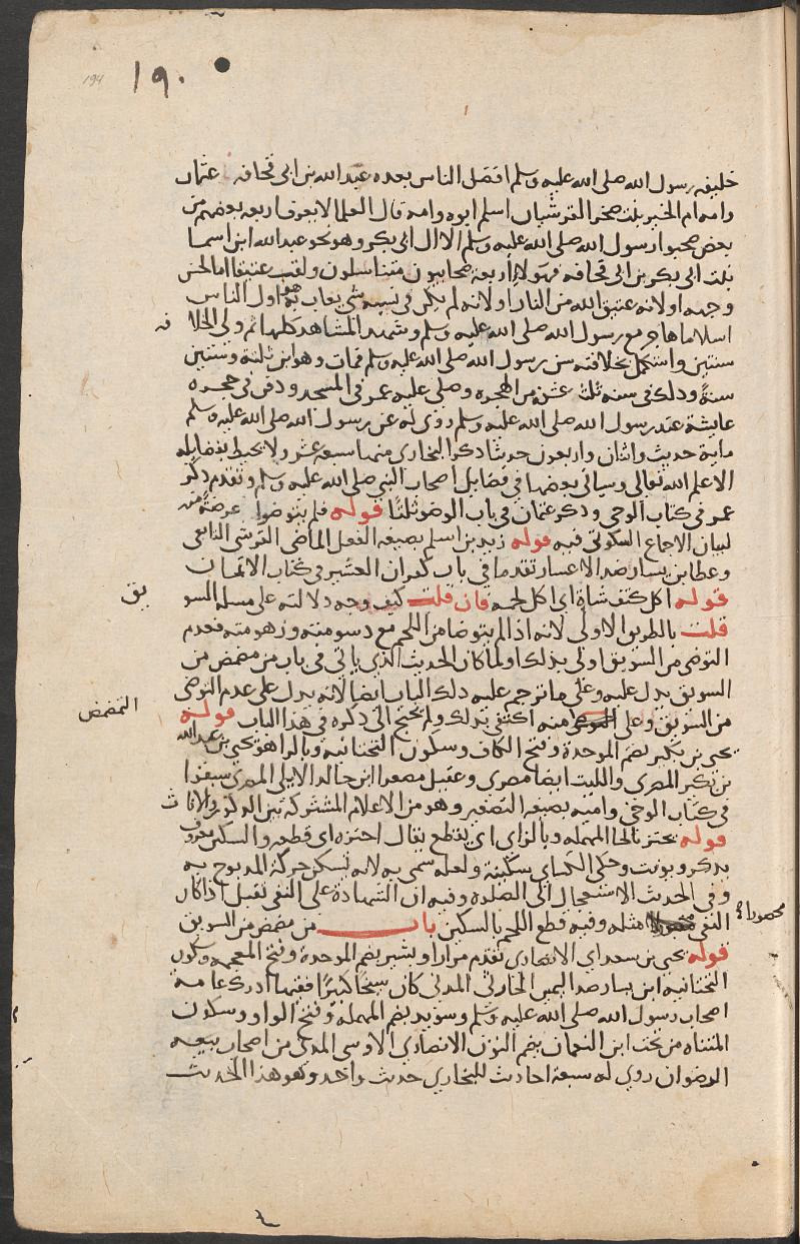 194
١٩٠
خليفة رسول الله صلى الله عليه وسلم افضل الناس بعده عبد الله بن ابى قحافه عثمان
وامه ام الخير بنت صخر القرشيان اسلم ابوه وامه قال العلما لا يعرف اربعه بعضهم من
بعض صحبوا رسول الله صلى الله عليه وسلم الا ال ابى بكر وهو نحو عبد الله ابن اسما
بنت ابى بكر بن ابى قحافه فهولا اربعة صحابيون متناسلون ولقب عتيقا اما لحسن
وجهه او لانه عتيق الله من النار او لانه لم يكن فى نسبه شى يعاب به هو اول الناس
اسلاما هاجر مع رسول الله صلى الله عليه وسلم وشهد المشاهد كلها ثم ولى الخلافه
سنتين واستكمل بخلافته سن رسول الله صلى الله عليه وسلم فمات وهو ابن ثلثة وستين
سنة وذلك فى سنه ثلث عشرة من الهجره وصلى عليه عمر فى المسجد ودفن فى حجره
عايشة عند رسول الله صلى الله عليه وسلم روى له عن رسول الله صلى الله عليه وسلم
ماية حديث واثنان واربعون حديثا ذكر البخارى منها سبعه عشر ولا يحيط بفضايله
الا علم الله تعالى وسياتى بعضها فى فضايل اصحاب النبى صلى الله عليه وسلم وتقدم ذكر
عمر فى كتاب الوحى وذكر عثمان فى باب الوضو ثلثا قوله فلم يتوضوا غرضه منه
لبيان الاجماع السكوتى فيه قوله زيد بن اسلم بصيغه الفعل الماضى القرشى التابعى
وعطا بن يسار ضد الاعسار تقدما فى باب كفران العشير فى كتاب الايمان
قوله اكل كتف شاة اى اكل لحمه فان قلت كيف وجه دلالته على مسله السويق
قلت بالطريق الاولى لانه اذا لم يتوضا من اللحم مع دسومته وزهومته فعدم
التوضى من السويق اولى بذلك او لما كان الحديث الذى ياتى فى باب من مضمض من
السويق يدل عليه وعلى ما ترجم عليه ذلك الباب ايضا لانه يدل على عدم التوضى
من السويق وعلى التمضمض منه اكتفى بذلك ولم يحتج الى ذكره فى هذا الباب قوله
يحيى بن بكير بضم الموحدة وفتح الكاف وسكون التحتانيه وبالراهو يحيى بن عبد الله
بن بكير المصرى والليث ايضا مصرى وعقيل مصغرا ابن خالد الايلى المصرى سبقوا
فى كتاب الوحى واميه بصيغه التصغير وهو من الاعلام المشتركة بين الذكور والاناث
قوله يحتز بالحا المهمله وبالزاى اى يقطع يقال احتزه اى قطعه والسكين معروف
يذكر ويونث وحكى الكساى سكينة ولعله سمى به لانه تسكن حركة المذبوح به
وفى الحديث الاستعجال الى الصلوة وفيه ان الشهادة على النفى تقبل اذا كان
النفى محصورا مثله وفيه قطع اللحم بالسكين باب من مضمض من السويق
قوله يحيى بن سعيد اى الانصارى تقدم مرارا وبشير بضم الموحدة وفتح المعجمه وسكون
التحتانيه ابن يسار ضد اليمين الحارثى المدنى كان شيخا كبيرا فقيها ادرك عامة
اصحاب رسول الله صلى الله عليه وسلم وسويد بضم المهمله وفتح الواو وسكون
المثناه من تحت ابن النعمان بضم النون الانصارى الاوسى المدنى من اصحاب بيعه
الرضوان روى له سبعة احاديث للبخارى حديث واحد وهو هذا الحديث